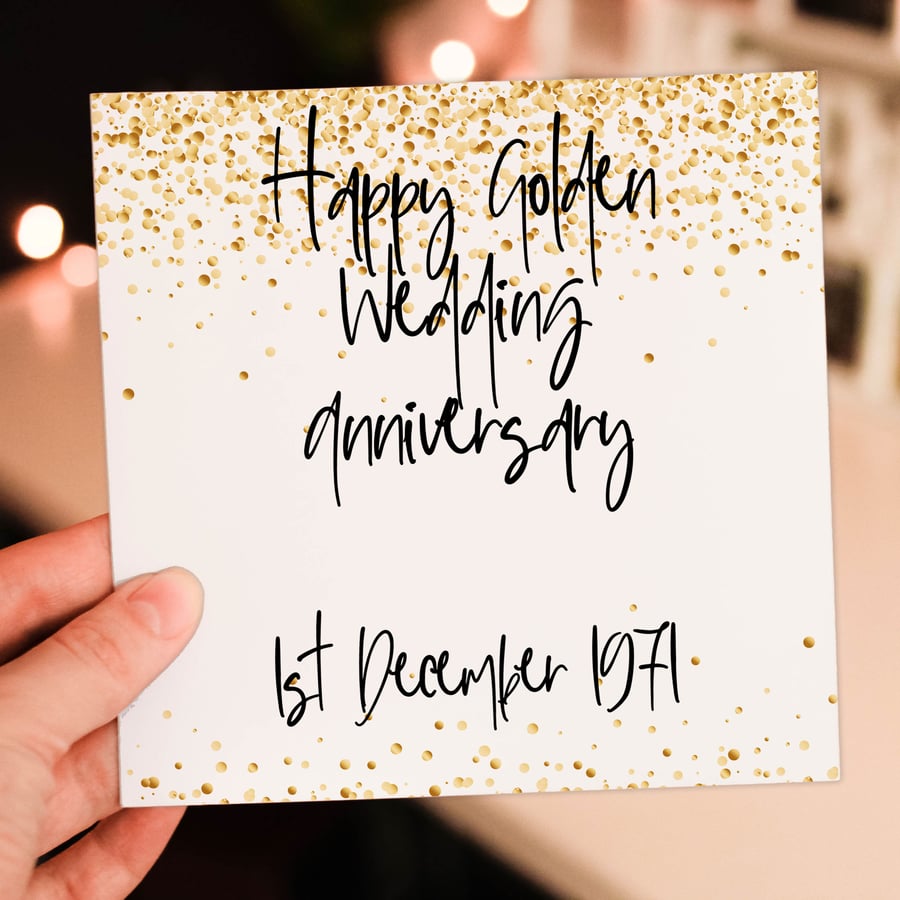 Happy Golden
Wedding
anniversary
1st December 1971